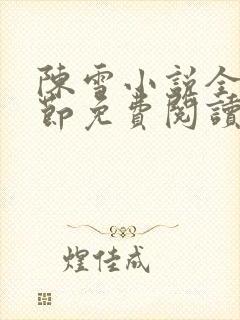 陳雪小說全
節免費閱讀
煌佳成